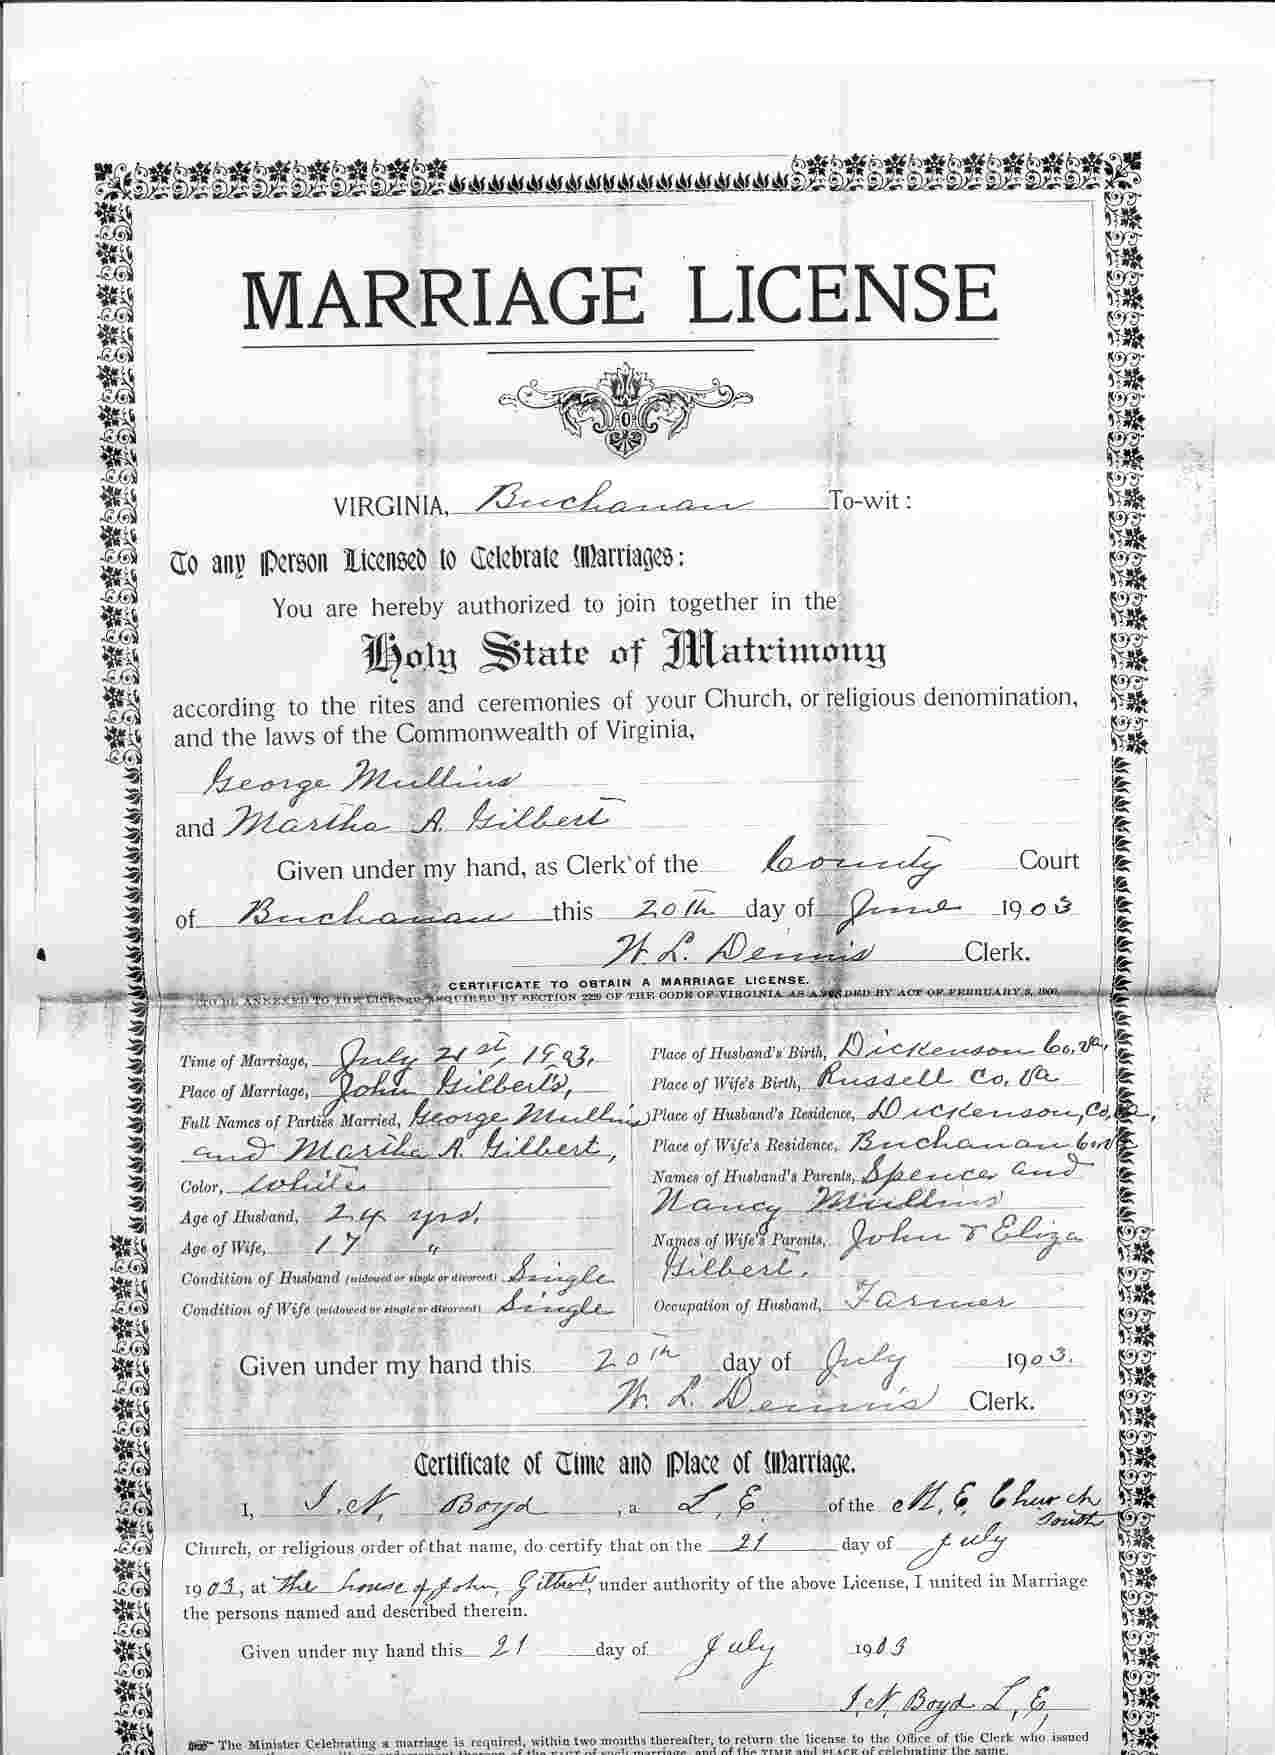 MARRIAGE LICENSE
VIRGINIA, Buchanan To-wit:
To any Person Licensed to Celebrate Marriages:
You are hereby authorized to join together in the
Holy State of Matrimony
according to the rites and ceremonies of your Church, or religious denomination,
and the laws of the Commonwealth of Virginia,
George Mullins
and Martha A. Gilbert
Given under my hand, as Clerk of the County Court
of Buchanan this 20th day of June 1903
W. L. Dennis Clerk.
CERTIFICATE TO OBTAIN A MARRIAGE LICENSE.
TO BE ANNEXED TO THE LICENSE, REQUIRED BY SECTION 2229 OF THE CODE OF VIRGINIA AS AMENDED BY ACT OF FEBRUARY
Time of Marriage, July 21st, 1903.
Place of Marriage, John Gilbert's,
Full Names of Parties Married, George Mullins
and Martha A. Gilbert,
Color, White
Age of Husband, 24 yrs.
Age of Wife, 17 "
Condition of Husband (widowed or single or divorced) Single
Condition of Wife (widowed or single or divorced) Single
Place of Husband's Birth, Dickenson Co. Va.
Place of Wife's Birth, Russell Co, Va
Place of Husband's Residence, Dickenson, Co, Va,
Place of Wife's Residence, Buchanan Co Va
Names of Husband's Parents, Spence and
Nancy Mullins
Names of Wife's Parents, John & Eliza
Gilbert.
Occupation of Husband, Farmer
Given under my hand this 20th day of July 1903.
W. L. Dennis Clerk.
Certificate of Time and Place of Marriage.
I, I. N. Boyd, a L, E. of the M, E, Church
South
Church, or religious order of that name, do certify that on the 21 day of July
1903, at the house of John, Gilbert, under authority of the above License, I united in Marriage
the persons named and described therein.
Given under my hand this 21 day of July 1903
I. N. Boyd L, E,
The Minister Celebrating a marriage is required, within two months thereafter, to return the license to the Office of the Clerk who issued
thereof of the FACT of such marriage, and of the TIME and PLACE of celebrating the same.